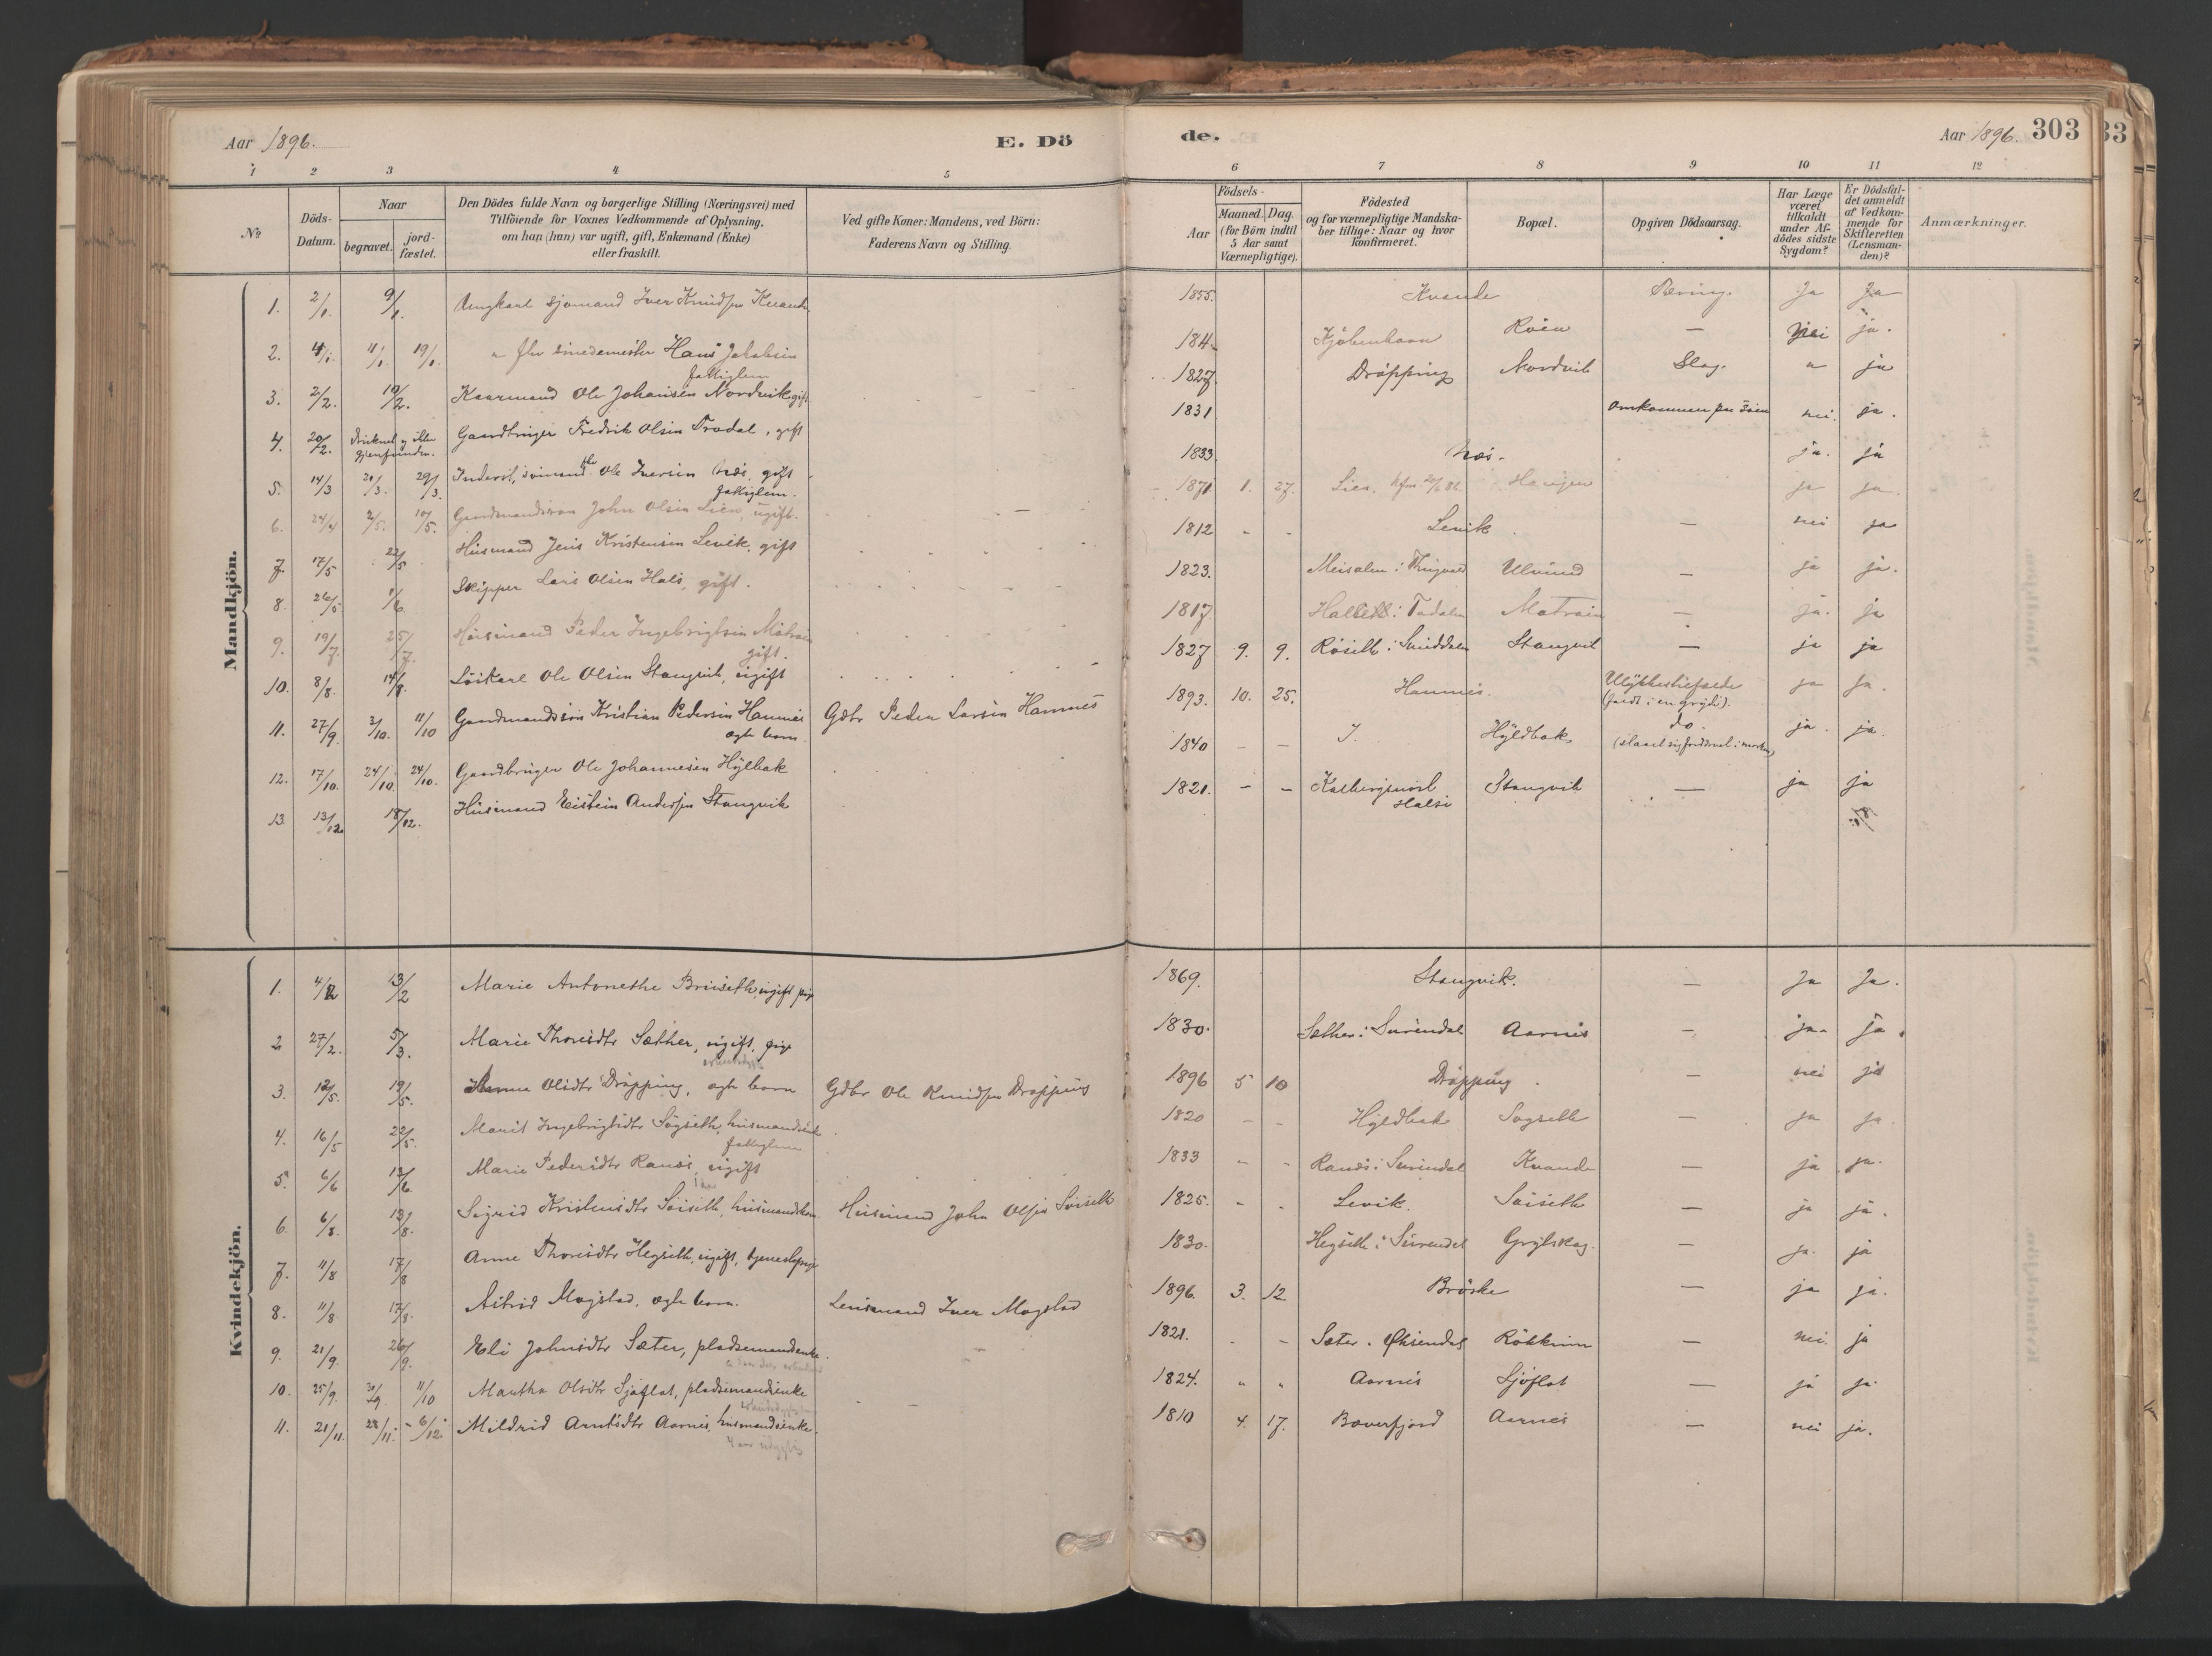 Aar 1896. E. Dö de. Aar 1896. 303 33
1 2 3 4 5 6 7 8 9 10 11 12
No
Döds-Datum.
Naar
begravet. jord-fæstet.
Den Dödes fulde Navn og borgerlige Stilling (Næringsvei) med
Tilföiende for Voxnes Vedkommende af Oplysning.
om han (hun) var ugift, gift, Enkemand (Enke)
eller fraskilt.
Ved gifte Koner: Mandens, ved Börn:
Faderens Navn og Stilling.
Födsels-
Aar Maaned. Dag.
(for Börn indtil
5 Aar samt
Værnepligtige).
Födested
og for værnepligtige Mandska-
ber tillige: Naar og hvor
konfirmeret.
Bopæl.
Opgiven Dödsaarsag.
Har Læge
været
tilkaldt
under Af-
dödes sidste
Sygdom?
Er Dödsfal-
det anmeldt
af Vedkom-
mende for
Skifteretten
(Lensman-
den)?
Anmærkninger.
Mandkjön.
1. 2/1. 9/1. Ungkarl sjomand Iver Knudsen Kvande 1855. Kvande Tæring. Ja Ja
2. 4/1. 11/1. 19/1. Hans Jakobsen 184 Kjöbenhavn Röen — nei ja.
3. 2/2. 10/2. Kaarmand Ole Johansen Nordvik gift. 1827 Dröpping Nordvik Slag. " ja
4. 20/2. druknet og ikke gjenfunden. Gaardbruger Fredrik Olsen Trodal, gift 1831 omkommen paa söen nei. ja.
5. 14/3 21/3. 29/3. Inderst, Ole Iversen Næs, gift 1833 Næs. ja. ja
fattiglem.
6. 24/4 2/5. 10/5. Gaardmandsson John Olsen Lien, ugift. 1871 1. 27. Lien. Haugen ja ja.
7. 17/5 22/5 Husmand Jens Kristensen Levik, gift 1812 - - Levik — nei ja
8. 26/5 1/6 Skipper Lars Olsen Hals, gift. 1823. Meisalen i Thingvold Ulvund — ja ja.
9. 19/7. 25/7. Husmand Peder Ingebrigtsen Motröen 1817. i Todalen Motröen — ja. ja
gift.
10. 8/8. 14/8. Löskarl Ole Olsen Stangvik, ugift 1827 9. 9. Röseth i Stangvik — ja ja
11. 27/9. 3/10. 11/10 Gaardmandssön Kristian Pedersen Hamnes Gdbr Peder Larsen Hamnes 1893. 10. 25. Hamnes. Ulykkestilfælde ja ja.
ægte barn. (faldt i en gryde).
12. 17/10. 24/10. 24/10. Gaardbruger Ole Johannesen Hylbak 1840 — — Hyldbak do. ja. ja.
13 13/12. 18/12. Husmand Eistein Andersen Stangvik 1821. — — Halse Stangvik — ja ja
Kvindekjön.
1. 4/2 13/2 Marie Antonethe Bruseth, ugift pige 1869. Stangvik. — Ja Ja.
2 27/2. 5/3. Marie Thoresdtr Sæther, ugift, pige 1830. Sæther i Surendal Aarnes — ja. ja.
3. 12/5. 19/5. Anne Olsdtr Dröpping, ægte barn Gdbr Ole Knudsen Dröpping 1896 5 10 Dröpping. — nei ja
4. 16/5 22/5. Marit Ingebrigtsdtr Sogseth, husmandsenke 1820 — — Hyldbak Sogseth — ja ja.
fattiglem
5. 6/6 13/6. Marie Pedersdtr Ranes, ugift 1833 - - Ranes i Surendal Kvande — ja ja.
6. 6/8. 13/8. Sigrid Kristensdtr Soiseth, husmandskone Husmand John Olsen Soiseth 1825. - - Levik. Soiseth — ja ja.
7. 11/8 17/8 Anne Thoresdtr Hegseth, ugift, tjenestepige 1830. Hegseth i Surendal Grytskog. — ja. ja
8. 11/8 17/8. Astrid Mogstad, ægte barn. Lensmand Iver Mogstad 1896. 3. 12 Bröske — ja ja.
9. 21/9. 26/9. Eli Johnsdtr Sæter, pladsemandsenke. 1821. - - Sæter. Öksendal Rökkum — nei. ja
10. 25/9. 30/9. 11/10 Martha Olsdtr Sjöflot, pladsemandsenke 1824. " " Aarnes Sjöflot — ja ja
11. 21/11. 28/11. - 6/12. Mildrid Arntsdtr Aarnes, husmandsenke. 1810 4. 17. Bæverfjord Aarnes — nei ja.